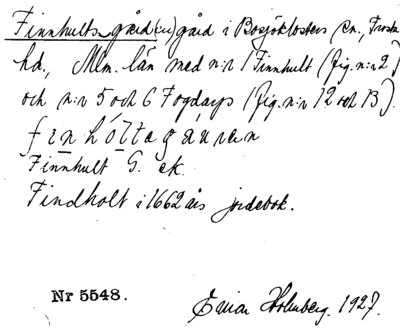 Finnhults gård(en), gård i Bosjöklosters sn., Frosta
hd., Mlm. län med n:r 1 Finnhult (fig. n:r 2)
och n:r 5 och 6 Fogdarp (fig. n:r 12 och 13).
finhòltagáuran
Finnhult G. ek.
Findholt i 1662 års jordebok.
Nr 5548.
Einar Holmberg. 1927.